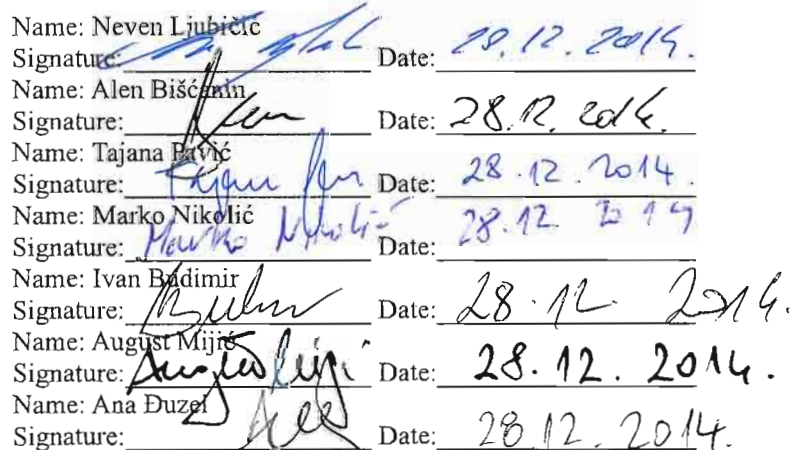 Name: Neven Ljubičić
Signature: Date: 28.12.2014.
Name: Alen Bišćanin
Signature: Date: 28.12.2014.
Name: Tajana Pavić
Signature: Tajana Date: 28.12.2014.
Name: Marko Nikolić
Signature: Marko Nikolić Date: 28.12 2014
Name: Ivan Budimir
Signature: Date: 28.12. 2014.
Name: August Mijić
Signature: Date: 28.12.2014.
Name: Ana Đuzel
Signature: Date: 28.12.2014.